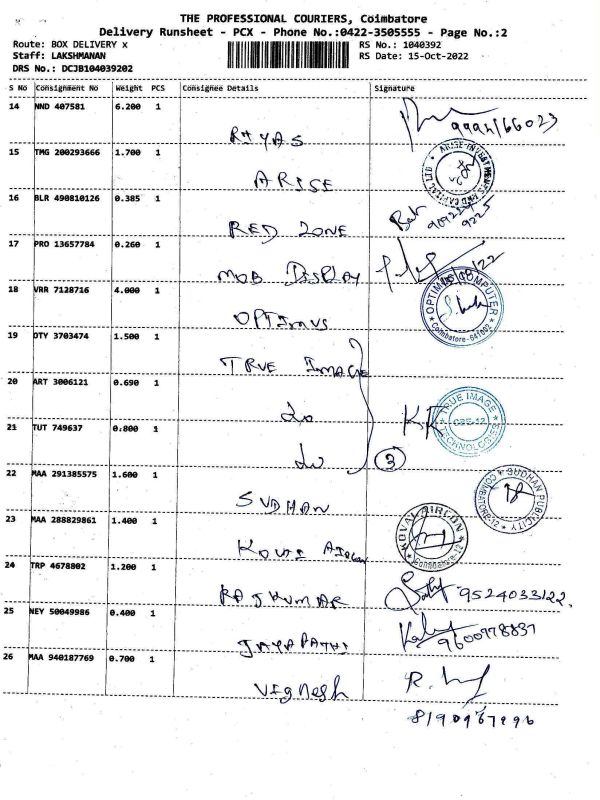 THE PROFESSIONAL COURIERS, Coimbatore
Delivery Runsheet - PCX - Phone No.:0422-3505555 - Page No.:2
Route: BOX DELIVERY x RS No.: 1040392
Staff: LAKSHMANAN RS Date: 15-Oct-2022
DRS No.: DCJB104039202
S No Consignment No Weight PCS Consignee Details Signature
14 NND 407581 6.200 1
RIYAS
15 TMG 200293666 1.700 1
ARISE
ARISE INVESTMENTS AND CAPITAL LTD
16 BLR 490810126 0.385 1
RED ZONE
17 PRO 13657784 0.260 1
MOB DISPLAY
18 VRR 7128716 4.000 1
OPTIMUS
OPTIMUS COMPUTER
Coimbatore-641002
19 OTY 3703474 1.500 1
TRUE IMAGE
20 ART 3006121 0.690 1
do
KR
TRUE IMAGE
CBE-12
TECHNOLOGIES
21 TUT 749637 0.800 1
do
3
22 MAA 291385575 1.600 1
SUDHAN
SUDHAN PUBLICITY
COIMBATORE-12
23 MAA 288829861 1.400 1
KOVAI AIRCON
KOVAI AIRCON
Coimbatore-12
24 TRP 4678802 1.200 1
RAJKUMAR
9524033122.
25 NEY 50049986 0.400 1
JAYAPATHI
9600978837
26 MAA 940187769 0.700 1
VIGNESH